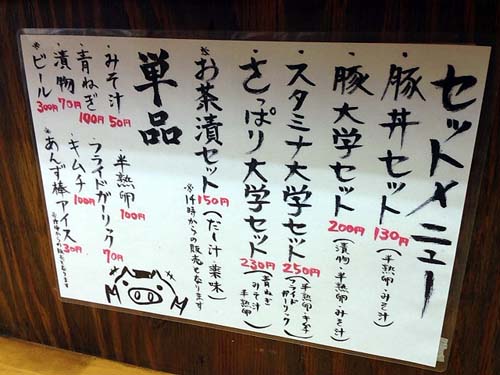 セットメニュー
・豚丼セット 130円 (半熟卵・みそ汁)
・豚大学セット 200円 (漬物・半熟卵・みそ汁)
・スタミナ大学セット 250円 (半熟卵・キムチ フライドガーリック)
・さっぱり大学セット 230円 (青ねぎ みそ汁 半熟卵)
※お茶漬セット 150円 (だし汁・薬味)
※14時からの販売となります
単品
・みそ汁 50円
・青ねぎ 100円
・漬物 70円
※ビール 300円
・半熟卵 100円
・フライドガーリック 70円
・キムチ 100円
※あんず棒アイス 30円